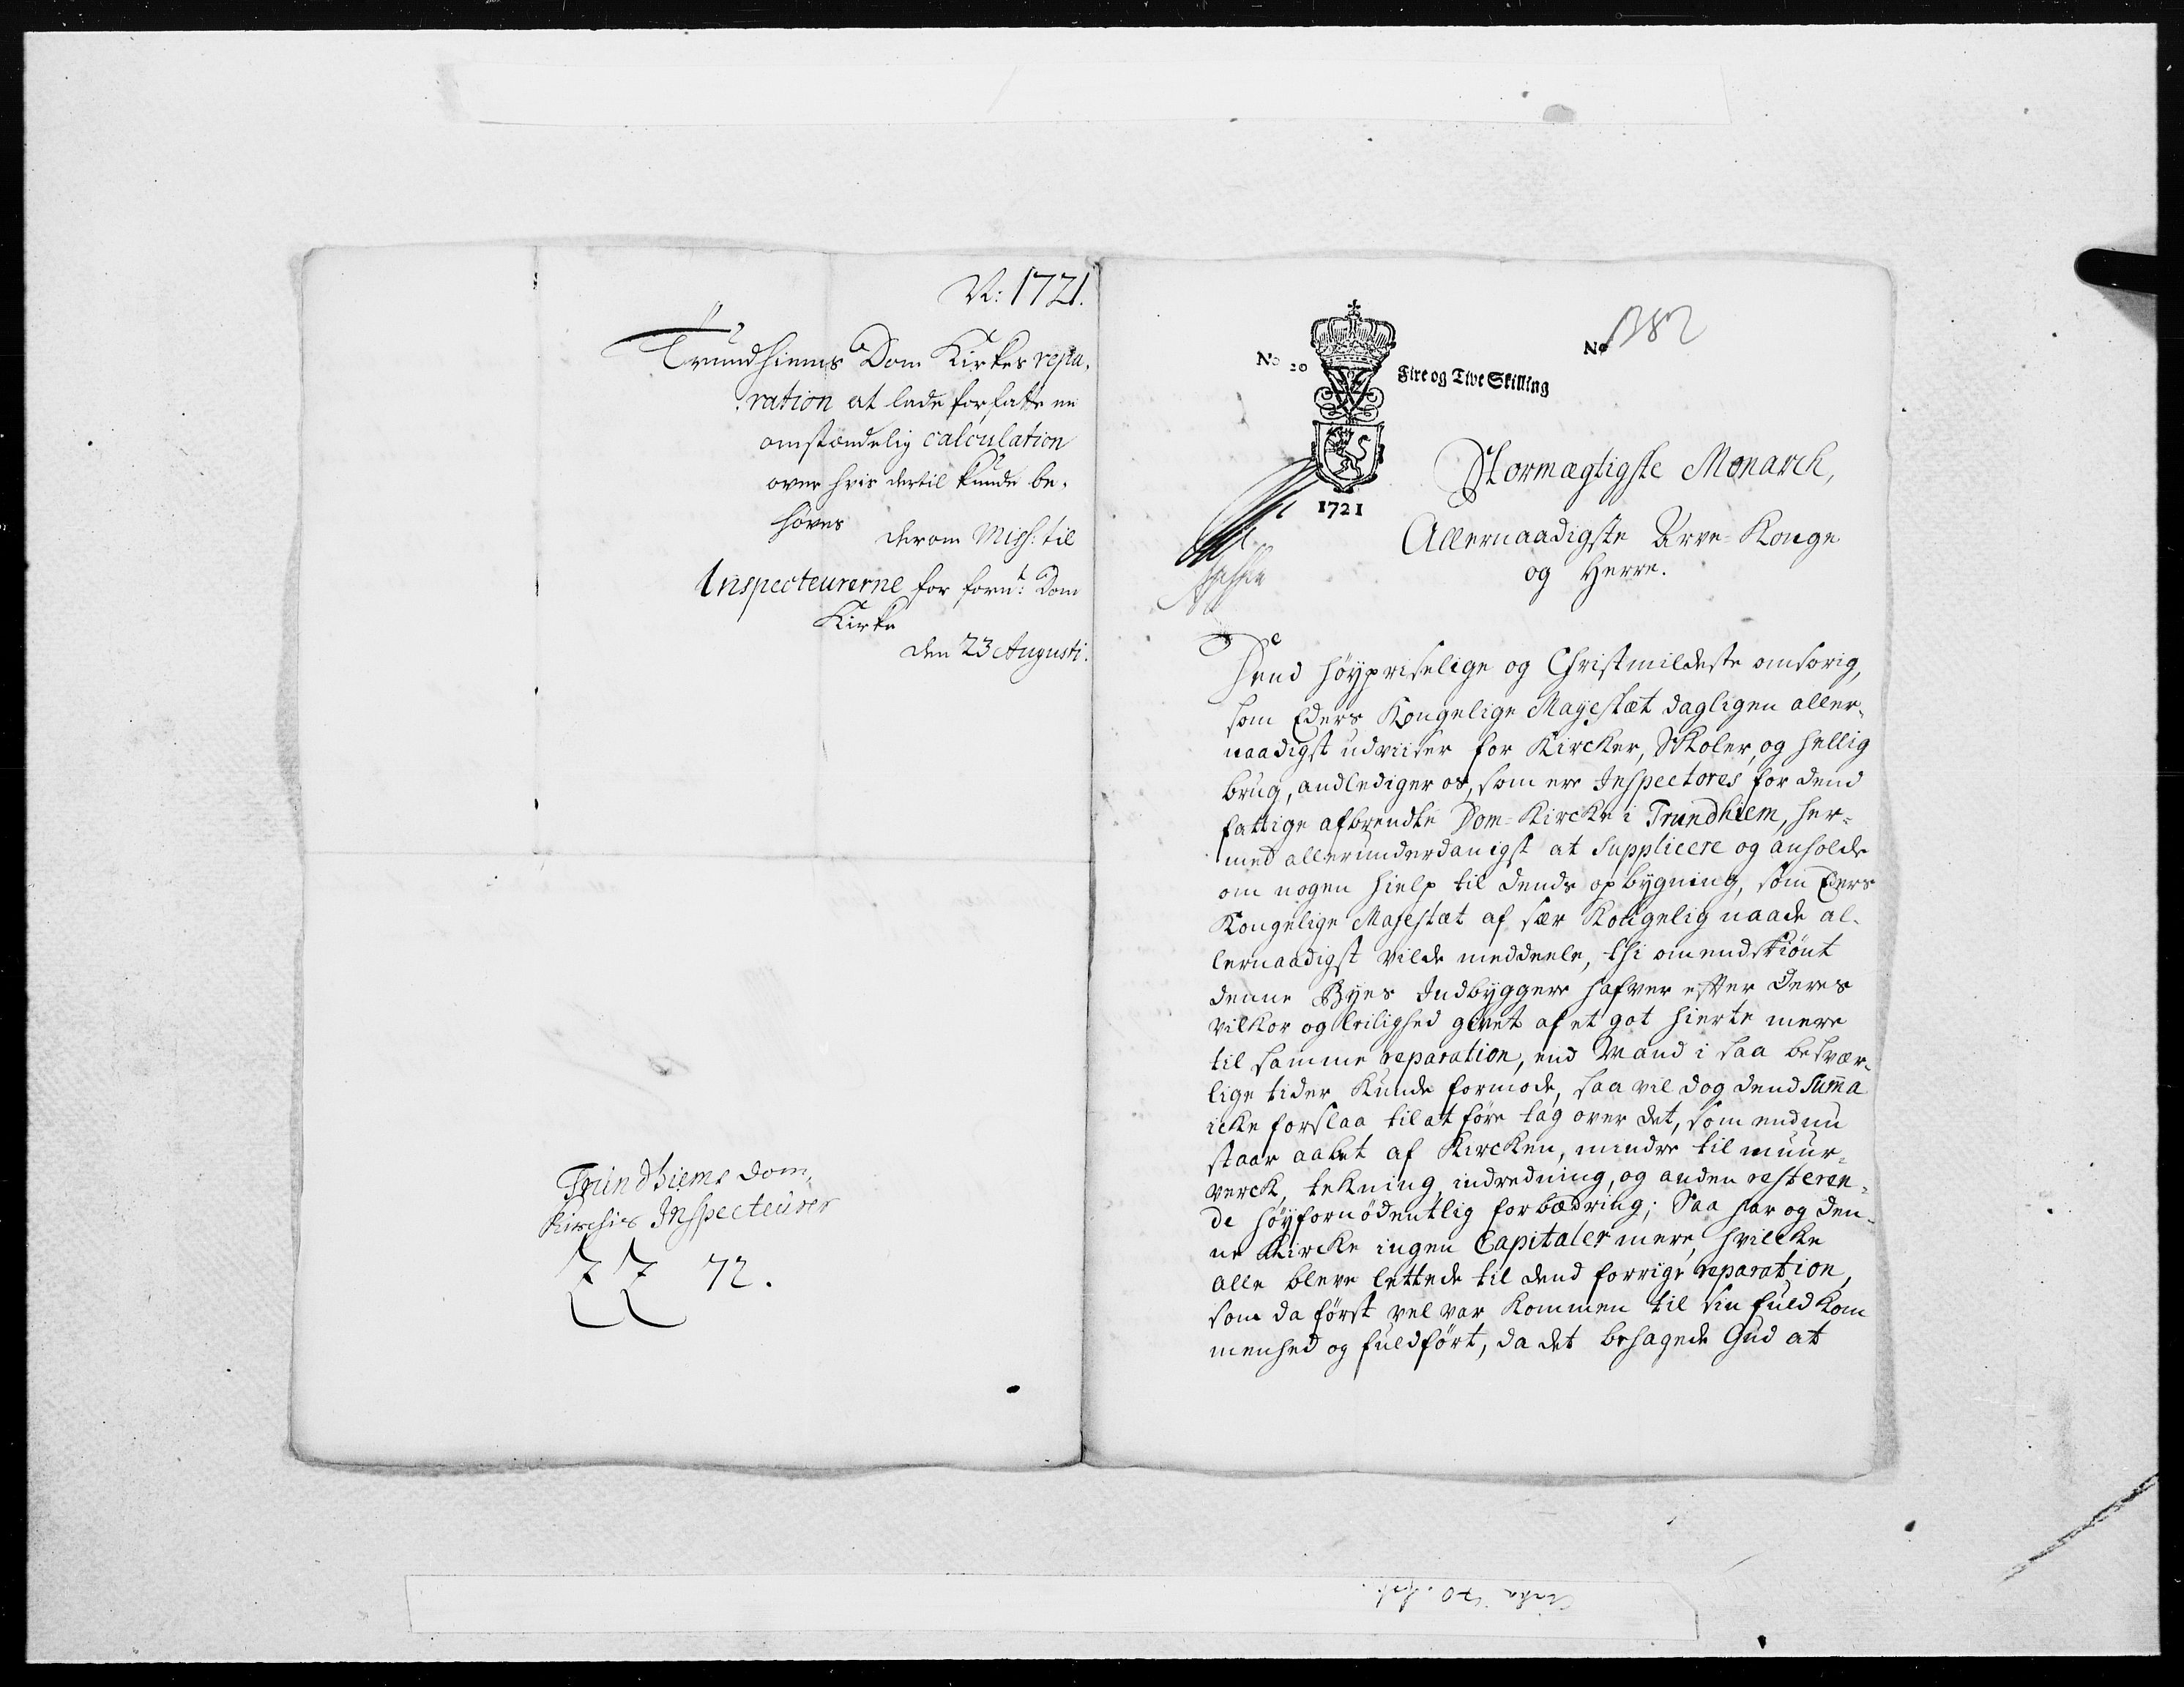 N: 1721.
Trundhiems Dom Kirkes repa-
ration at lade forfatte en
omstændelig calculation
over hvis dertil kunde be-
høves
derom Miss: til
Inspecteurerne for fornt: Dom
Kirke
den 23 Augusti.
Trundhiems Dom
Kirchis Inspecteurer
72.
No 20
Fire og Tive Skilling
No 1382
1721
Stormægtigste Monarch,
Allernaadigste Arve-Konge
og Herre.
Dend høypriselige og Christmildeste omsorig,
som Eders Kongelige Mayestæt dagligen aller-
naadigst udviiser for Kircker, Skoler, og hellig
brug, andlediger os, som ere Inspectores for dend
fattige afbrendte Dom-Kircke i Trundhiem, her-
med allerunderdanigst at Supplicere og anholde
om nogen hielp til dends opbygning, som Eders
Kongelige Majestæt af sær Kongelig naade al-
lernaadigst vilde meddeele, thi omendskiønt
denne Byes Indbyggere hafver efter deres
vilkor og leilighed givet af et got hierte mere
til samme reparation, end Mand i saa besvær-
lige tider kunde formode, saa vil dog dend Summa
icke forslaa til at føre tag over det, som endnu
staar aabet af Kircken, mindre til muur-
verck, tekning, indredning, og anden resteren-
de høyfornødentlig forbædring; Saa har og den-
ne Kircke ingen Capitaler mere, hvilcke
alle bleve lettede til dend forrige reparation,
som da først vel var kommen til sin fuldkom
menhed og fuldført, da det behagede Gud at